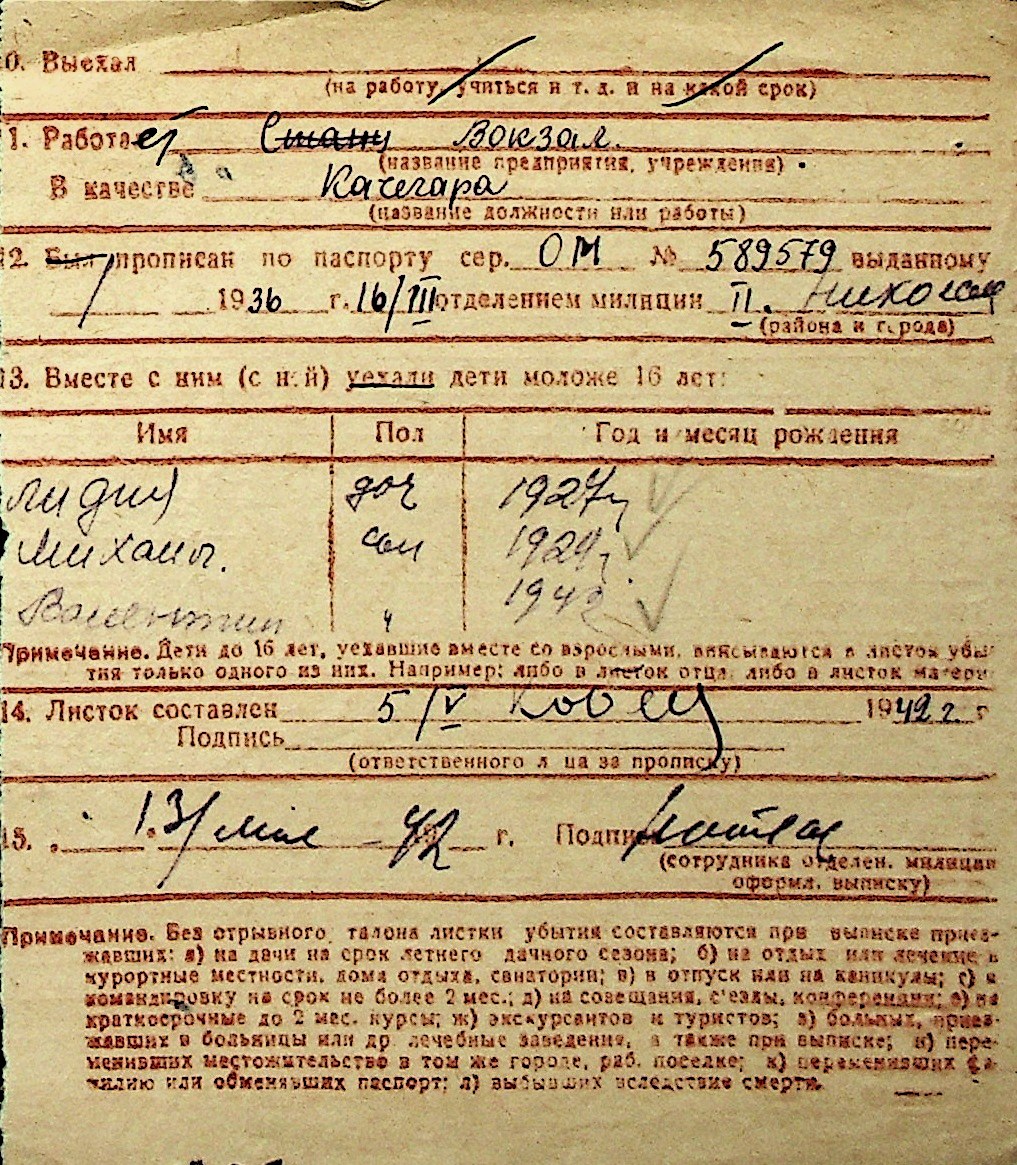 0. Выехал
(на работу, учиться и т. д. и на какой срок)
1. Работает Стани Вокзал.
(название предприятия, учреждения)
В качестве Качегара
(название должности или работы)
12. Был прописан по паспорту сер. ОМ № 589579 выданному
1936 г. 16/III отделением милиции II.
(района и города)
13. Вместе с ним (с ней) уехали дети моложе 16 лет:
Имя Пол Год и месяц рождения
Лидия доч 1927г
Михаил. сын 1929г
Валентин " 1942
Примечание. Дети до 16 лет, уехавшие вместе со взрослыми, вписываются в листок убы-
тия только одного из них. Например: либо в листок отца, либо в листок матери
14. Листок составлен 5/V 1942 г. г
Подпись
(ответственного лица за прописку)
15. „ 13/ мая 42 г. Подпись
(сотрудника отделен. милиции
оформл. выписку)
Примечание. Без отрывного талона листки убытия составляются при выписке приез-
жавших: а) на дачи на срок летнего дачного сезона; б) на отдых или лечение в
курортные местности, дома отдыха, санатории; в) в отпуск или на каникулы; г) в
командировку на срок не более 2 мес.; д) на совещания, с'езды, конференции; е) на
краткосрочные до 2 мес. курсы; ж) экскурсантов и туристов; з) больных, приез-
жавших в больницы или др. лечебные заведения, а также при выписке; и) пере-
менивших местожительство в том же городе, раб. поселке; к) переменивших фа-
милию или обменявших паспорт; л) выбывших вследствие смерти.